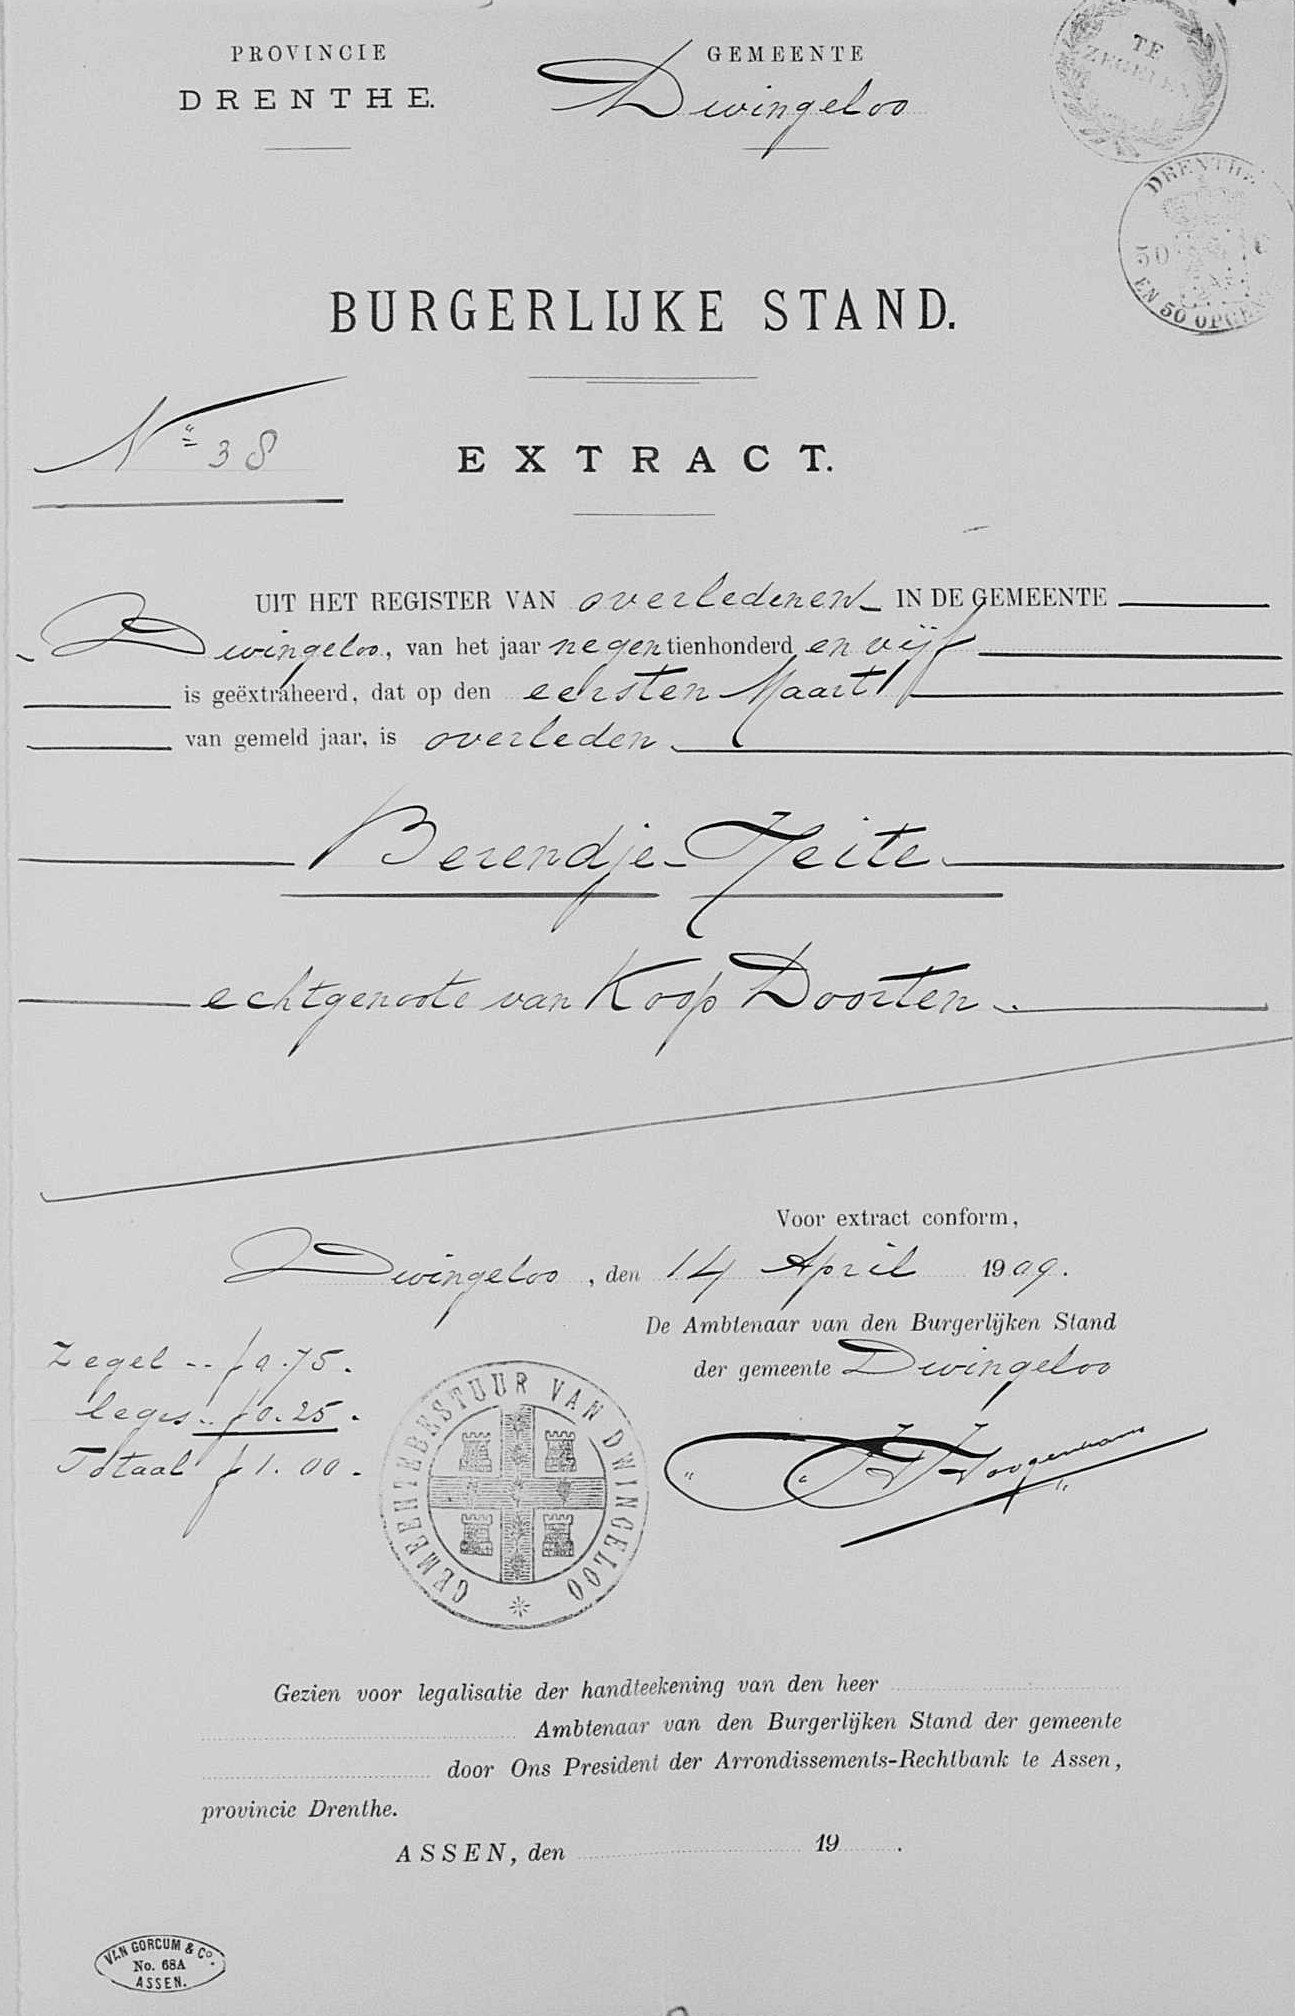 PROVINCIE
DRENTHE.
GEMEENTE
Dwingeloo
TE
ZEGELEN
DRENTHE
50
EN 50 OPC
BURGERLIJKE STAND.
No 38
EXTRACT.
UIT HET REGISTER VAN overledenen IN DE GEMEENTE
Dwingeloo, van het jaar negentienhonderd en vijf
is geëxtraheerd, dat op den eersten Maart
van gemeld jaar, is overleden
Berendje Zeite
echtgenoote van Koop Doorten
Voor extract conform,
Dwingeloo, den 14 April 1909.
De Ambtenaar van den Burgerlijken Stand
der gemeente Dwingeloo
Zegel .. f 0.75.
leges .. f 0.25.
Totaal f 1.00.
GEMEENTEBESTUUR VAN DWINGELOO
Gezien voor legalisatie der handteekening van den heer
Ambtenaar van den Burgerlijken Stand der gemeente
door Ons President der Arrondissements-Rechtbank te Assen,
provincie Drenthe.
ASSEN, den 19 .
VAN GORCUM & Co.
No. 68A
ASSEN.